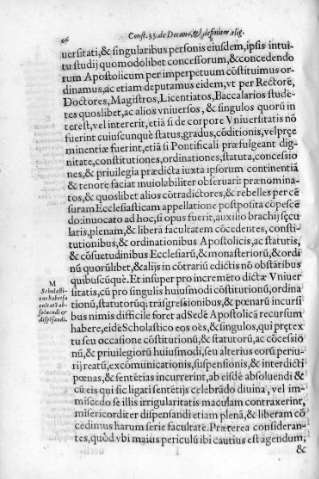 Const. 33. de Decano, &
uersitati, & singularibus personis eiusdem, ipsis intui-
tu studij quomodolibet concessorum, & concedendo
rum Apostolicum per imperpetuum cõstituimus or-
dinamus, ac etiam deputamus eidem, vt per Rectorẽ,
Doctores, Magistros, Licentiatos, Baccalarios studẽ-
tes quoslibet, ac alios vniuersos, & singulos quorũ in
terest, vel intererit, etiã si de corpore Vniuersitatis nõ
fuerint cuiuscunque status, gradus, cõditionis, vel pręe
minentiæ fuerint, etiã si Pontificali præfulgeant dig-
nitate, constitutiones, ordinationes, statuta, concessio
nes, & priuilegia prædicta iuxta ipsorum continentiã
& tenore faciat inuiolabiliter obseruari: prænomina-
tos, & quoslibet alios cõtradictores, & rebelles per cẽ
suram Ecclesiasticam appellatione postposita cõpesce
do: inuocato ad hoc, si opus fuerit, auxilio brachij sęcu
laris, plenam, & libera facultatem cõcedentes, consti-
tutionibus, & ordinationibus Apostolicis, ac statutis,
& cõsuetudinibus Ecclesiarũ, & monasteriorũ, & ordi
nũ quorũlibet, & alijs in cõtrariũ edictis nõ obstãtibus
quibuscũque. Et insuper pro incremẽto dictæ Vniuer
sitatis, cũ pro singulis huiusmodi cõstitutionũ, ordina
tionũ, statutorũq; trãsgressionibus, & pœnarũ incursi
bus nimis difficile foret ad Sedẽ Apostolicã recursum
habere, eidẽ Scholastico eos oẽs, & singulos, qui prętex
tu seu occasione cõstitutionũ, & statutorũ, ac cõcessio
nũ, & priuilegiorũ huiusmodi, seu alterius eorũ periu-
rij reatũ, excõmunicationis, suspensionis, & interdicti
pœnas, & sentẽtias incurrerint, ab eisdẽ absoluendi &
cũ eis qui sic ligati sentẽtijs celebrãdo diuina, vel im-
miscẽdo se illis irregularitatis maculam contraxerint,
misericorditer dispensandi etiam plenã, & liberam cõ
cedimus harum serie facultatẽ. Præterea consideran-
tes, quòd vbi maius periculũ ibi cautius est agendum,
&
M